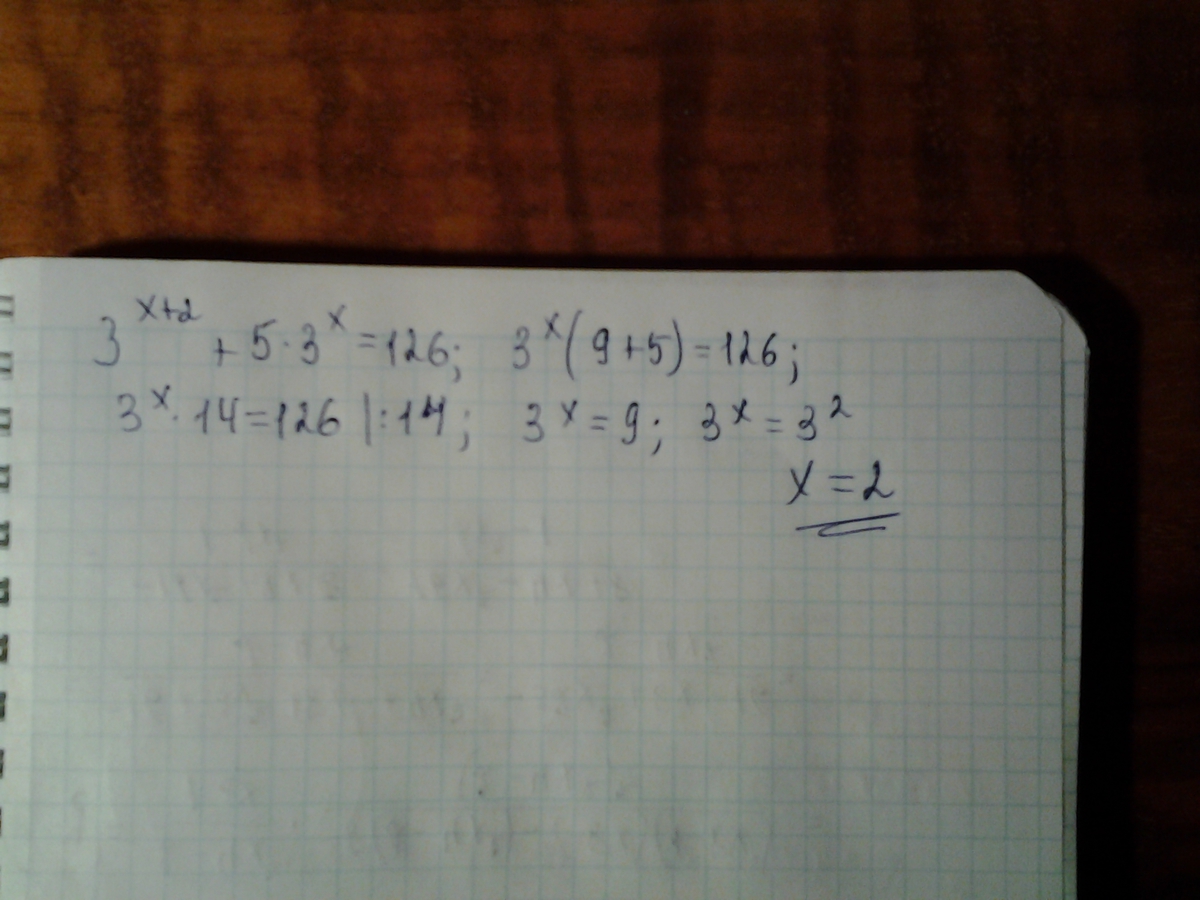 3^{x+2} + 5·3^x = 126; 3^x(9+5) = 126;
3^x·14 = 126 |:14; 3^x = 9; 3^x = 3^2
x = 2